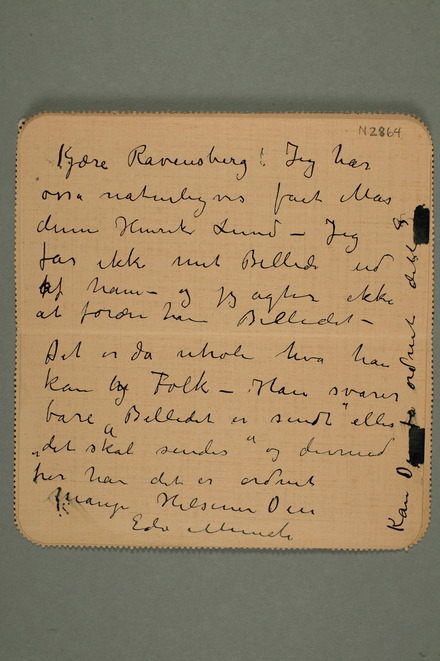 N 2864
Kjære Ravensberg! Jeg har
naturligvis faet Mas
dum Henrik Lund – Jeg
far ikke mit Billede ud
af ham – og jeg agter ikke
at forære ham Billedet –
Det er da utrolig hva han
kan by Folk – Han svarer
bare "Billedet er sendt" eller
"det skal sendes" og dermed
tror han det er ordnet
Mange Hilsener Din
Edv Munch
Kan Du fa ordnet dette?